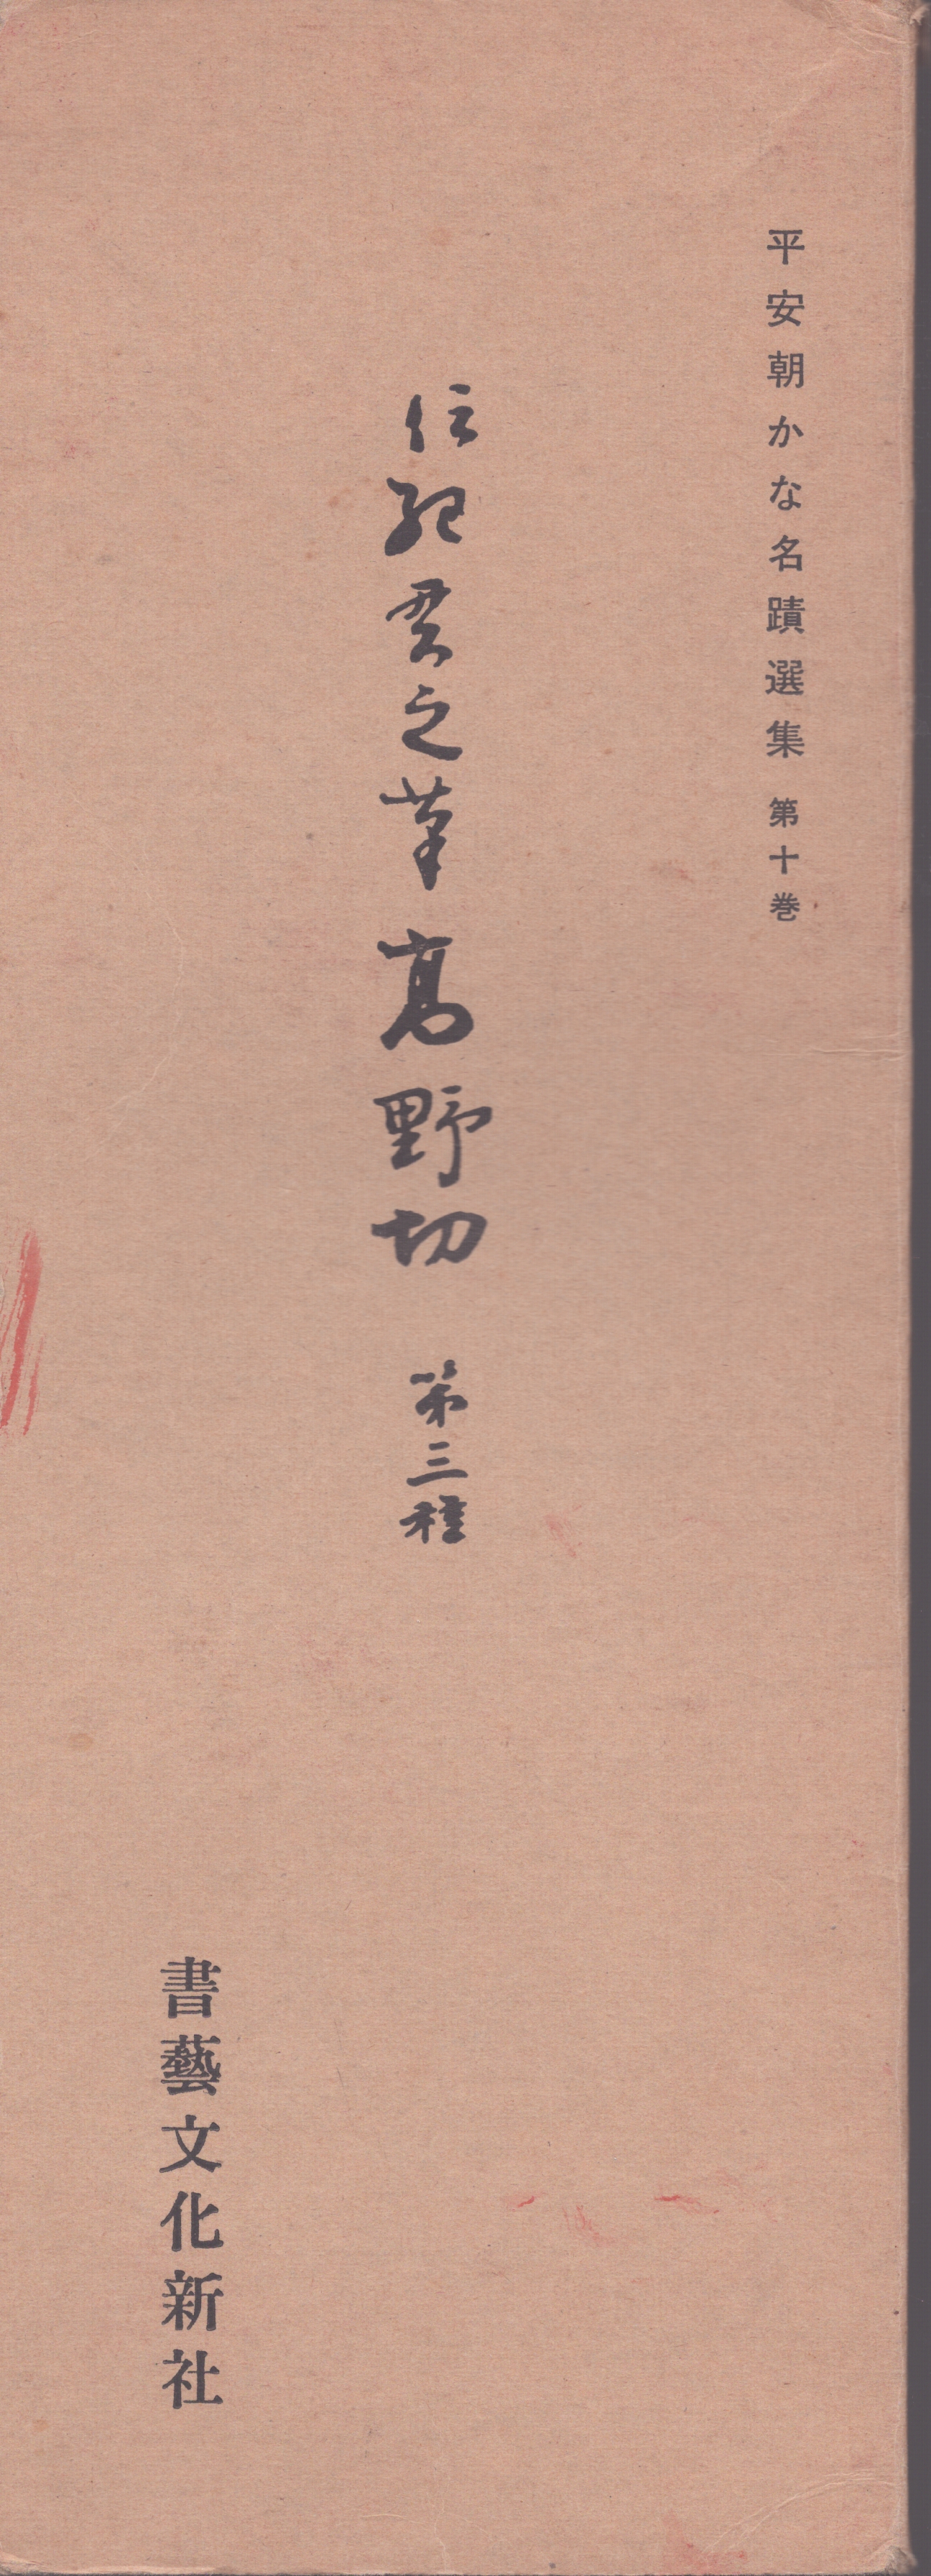 平安朝かな名蹟選集 第十巻
伝紀貫之筆 高野切 第三種
書藝文化新社